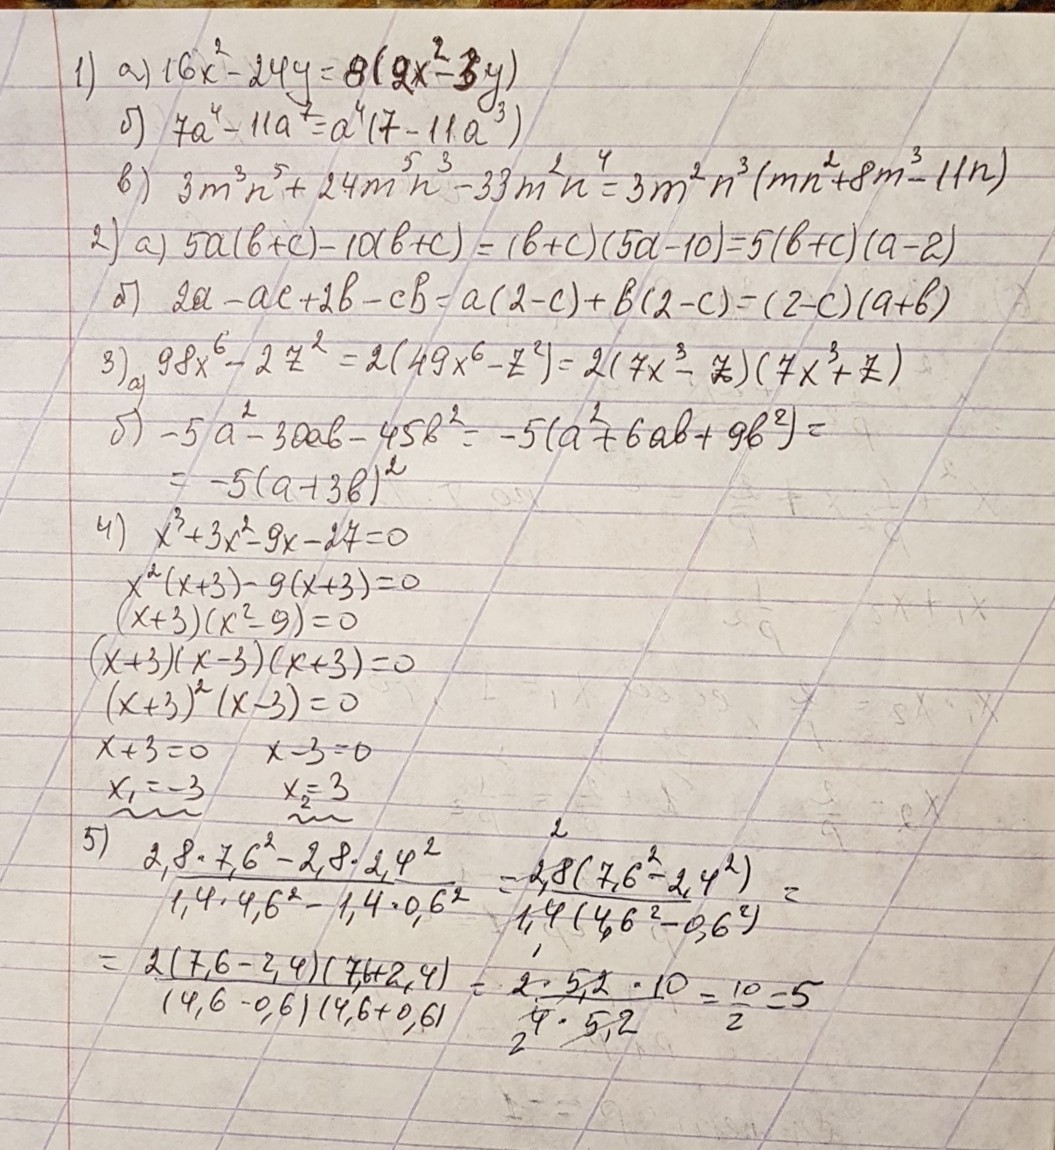 1) а) 16x² - 24y = 8(2x² - 3y)
б) 7a⁴ - 11a⁷ = a⁴(7 - 11a³)
в) 3m³n⁵ + 24m⁵n³ - 33m²n⁴ = 3m²n³(mn² + 8m³ - 11n)
2) а) 5a(b+c) - 10(b+c) = (b+c)(5a-10) = 5(b+c)(a-2)
б) 2a - ac + 2b - cb = a(2-c) + b(2-c) = (2-c)(a+b)
3) а) 98x⁶ - 2z² = 2(49x⁶ - z²) = 2(7x³ - z)(7x³ + z)
б) -5a² - 30ab - 45b² = -5(a² + 6ab + 9b²) =
= -5(a+3b)²
4) x³ + 3x² - 9x - 27 = 0
x²(x+3) - 9(x+3) = 0
(x+3)(x² - 9) = 0
(x+3)(x-3)(x+3) = 0
(x+3)²(x-3) = 0
x+3=0 x-3=0
x₁ = -3 x₂ = 3
5) (2,8·7,6² - 2,8·2,4²)/(1,4·4,6² - 1,4·0,6²) = (2,8(7,6² - 2,4²))/(1,4(4,6² - 0,6²)) =
= (2(7,6-2,4)(7,6+2,4))/((4,6-0,6)(4,6+0,6)) = (2·5,2·10)/(4·5,2) = 10/2 = 5